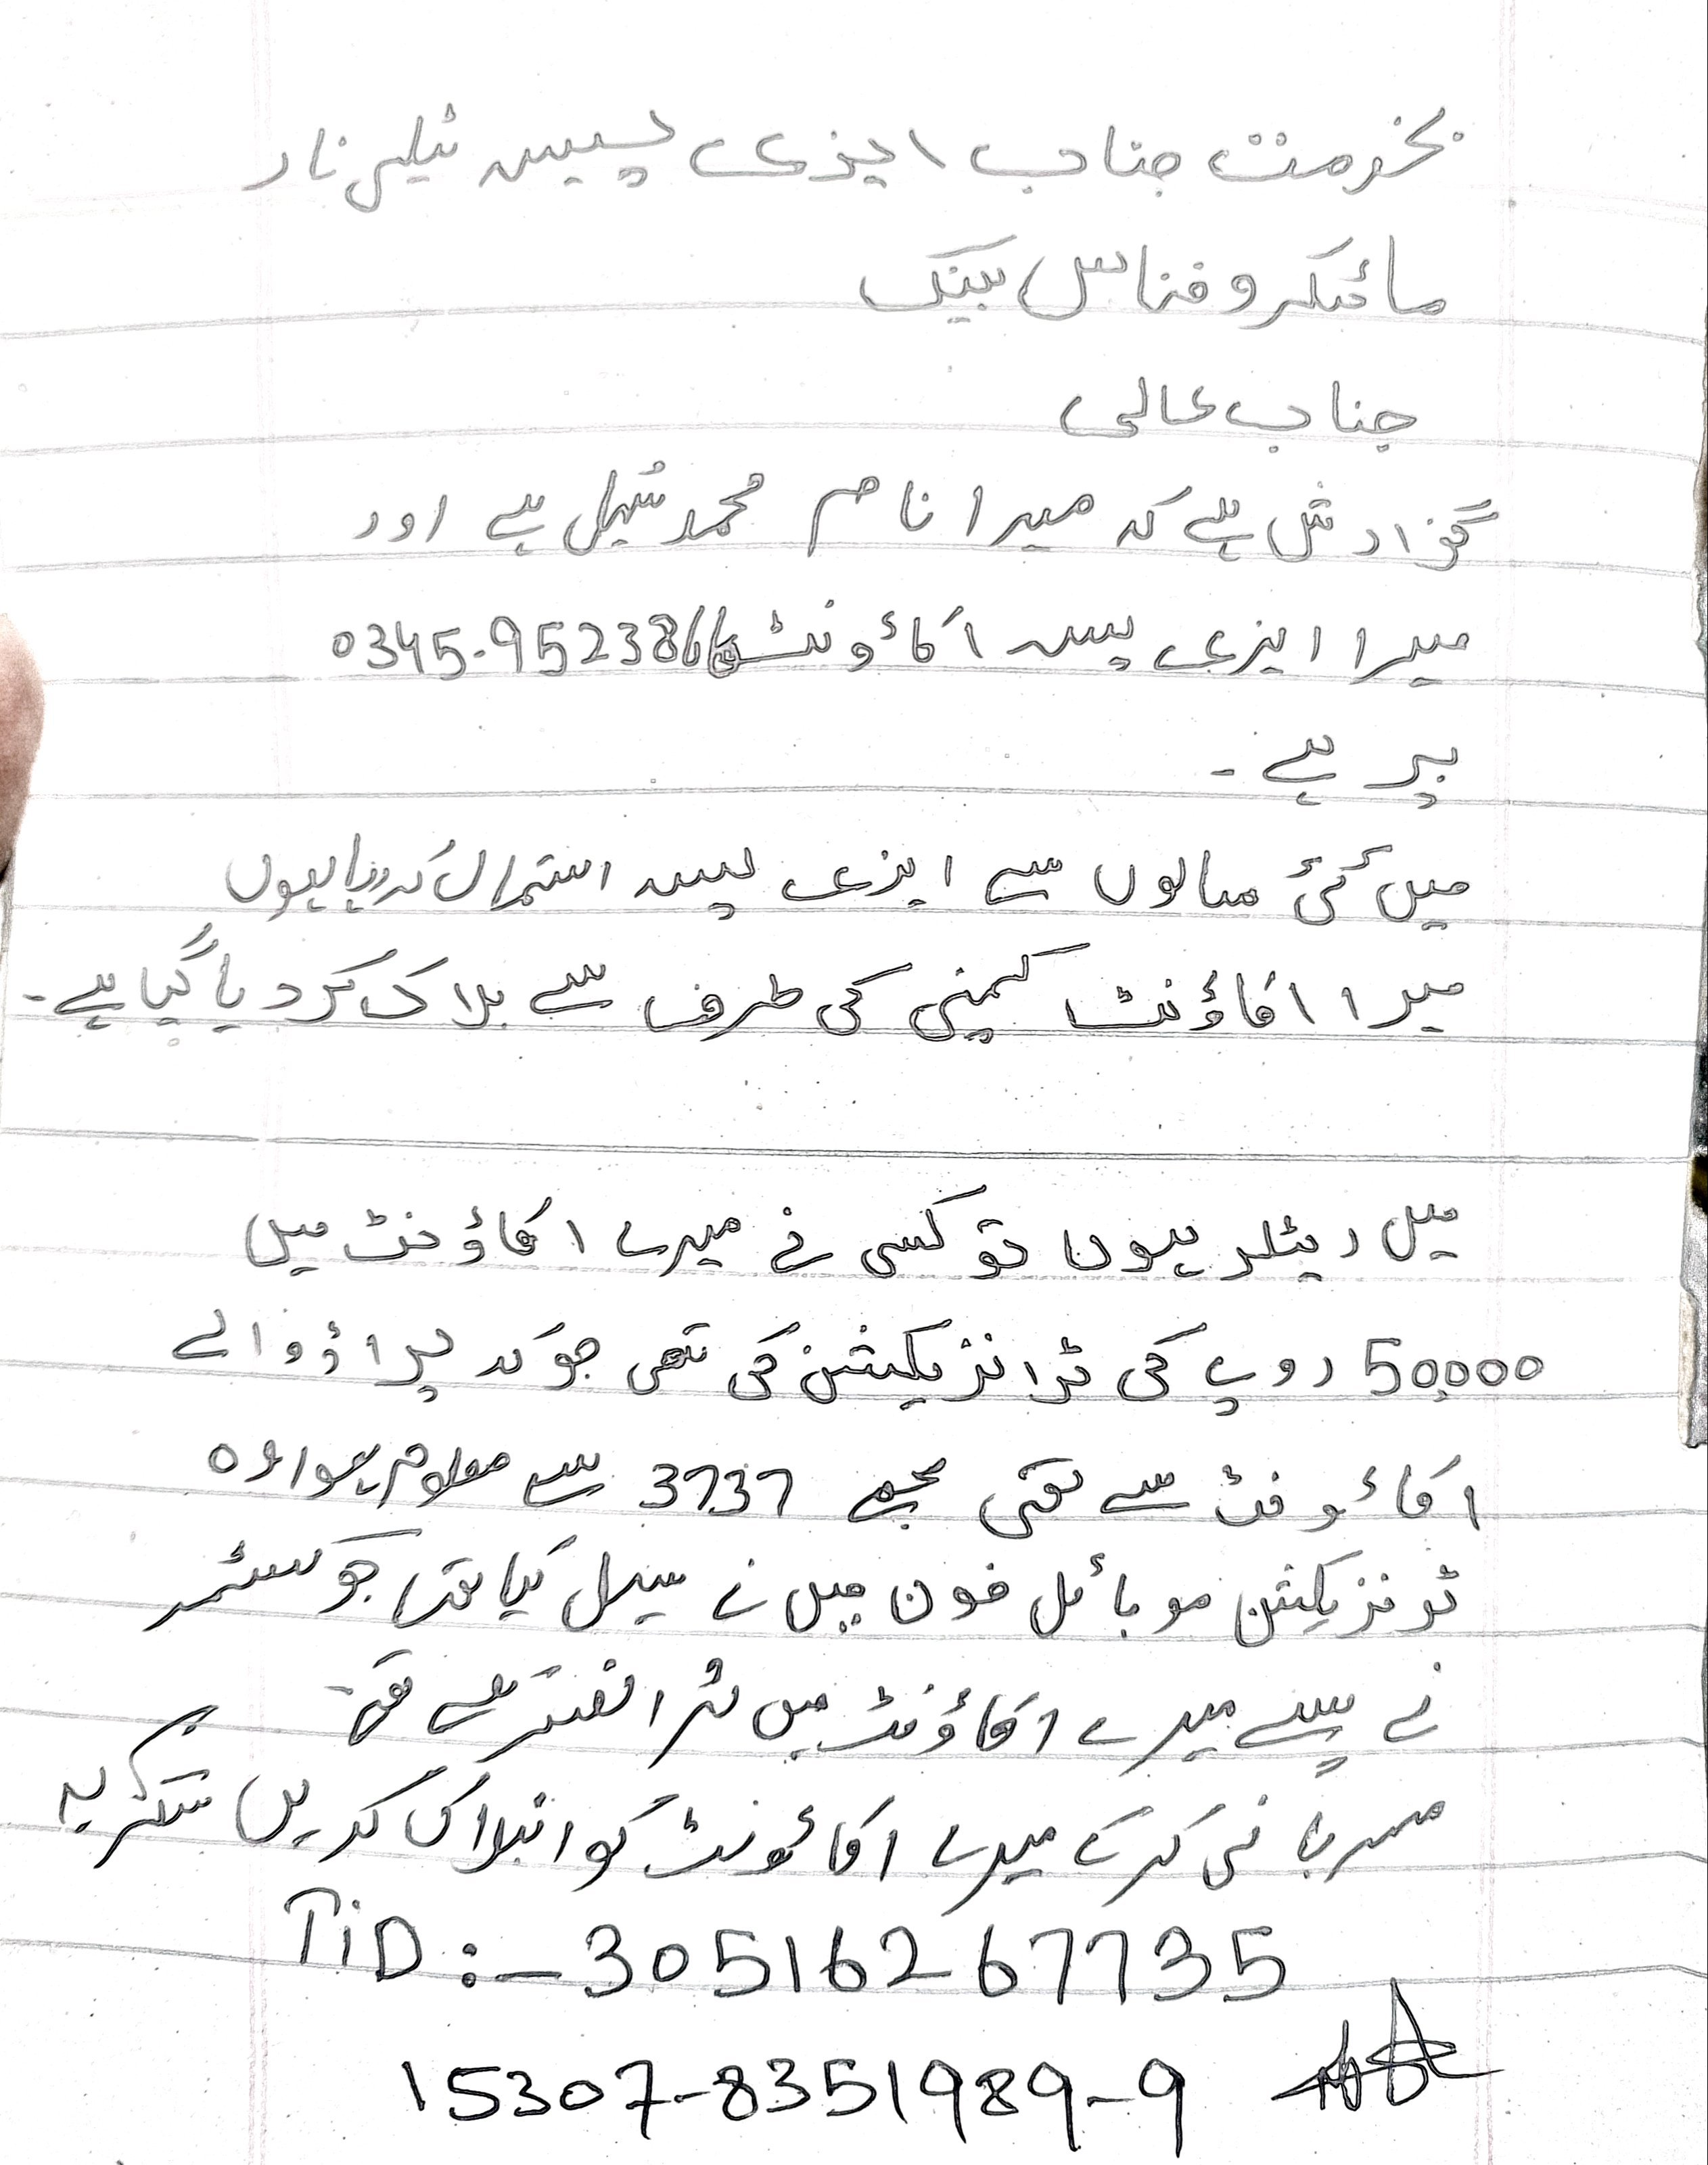 بخدمت جناب ایزی پیسہ ٹیلی نار
مائیکرو فنانس بینک
جناب عالی
گزارش ہے کہ میرا نام محمد سُہیل ہے اور
میرا ایزی پیسہ اکاؤنٹ 0345-952386
پر ہے ۔
میں کئی سالوں سے ایزی پیسہ استمال کر رہا ہوں
میرا اکاؤنٹ کمپنی کی طرف سے بلاک کر دیا گیا ہے ۔
میں ریٹلر ہوں تو کسی نے میرے اکاؤنٹ میں
50,000 روپے کی ٹرانزیکشن کی تھی جو کہ پراؤ والے
اکاؤنٹ سے تھی مجھے 3737 سے معلوم ہوا وہ
ٹرنزیکشن موبائل فون میں نے سیل کیا تھا جو کسٹمر
نے پیسے میرے اکاؤنٹ میں ٹرانفسر کیے تھے ۔
مہربانی کر کے میرے اکاؤنٹ کو انبلاک کریں شکریہ
TiD :- 30516267735
15307-8351989-9